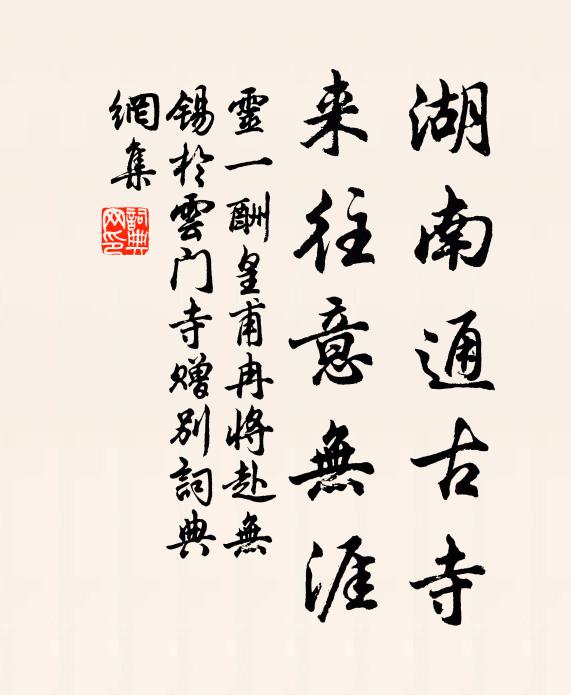 湖南通古寺
来往意無涯
靈一酬皇甫冉将赴無
錫於雲门寺赠别詞典
網集
詞典网印